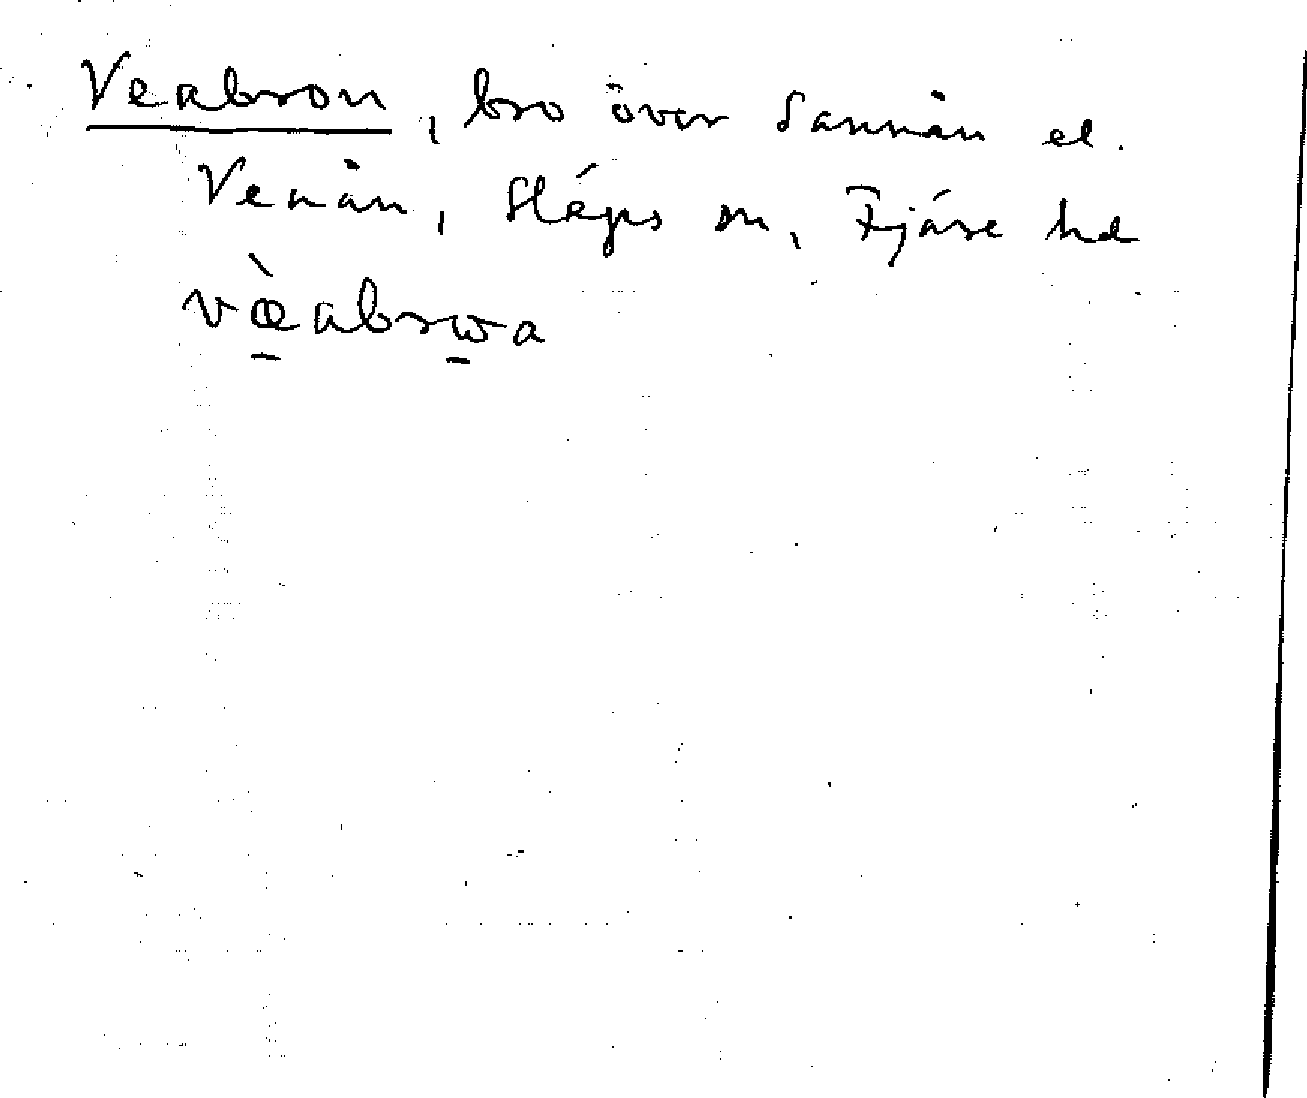 Veabron, bro över Sannån el.
Venån, Släps sn, Fjäre hd
væ̀abrωa